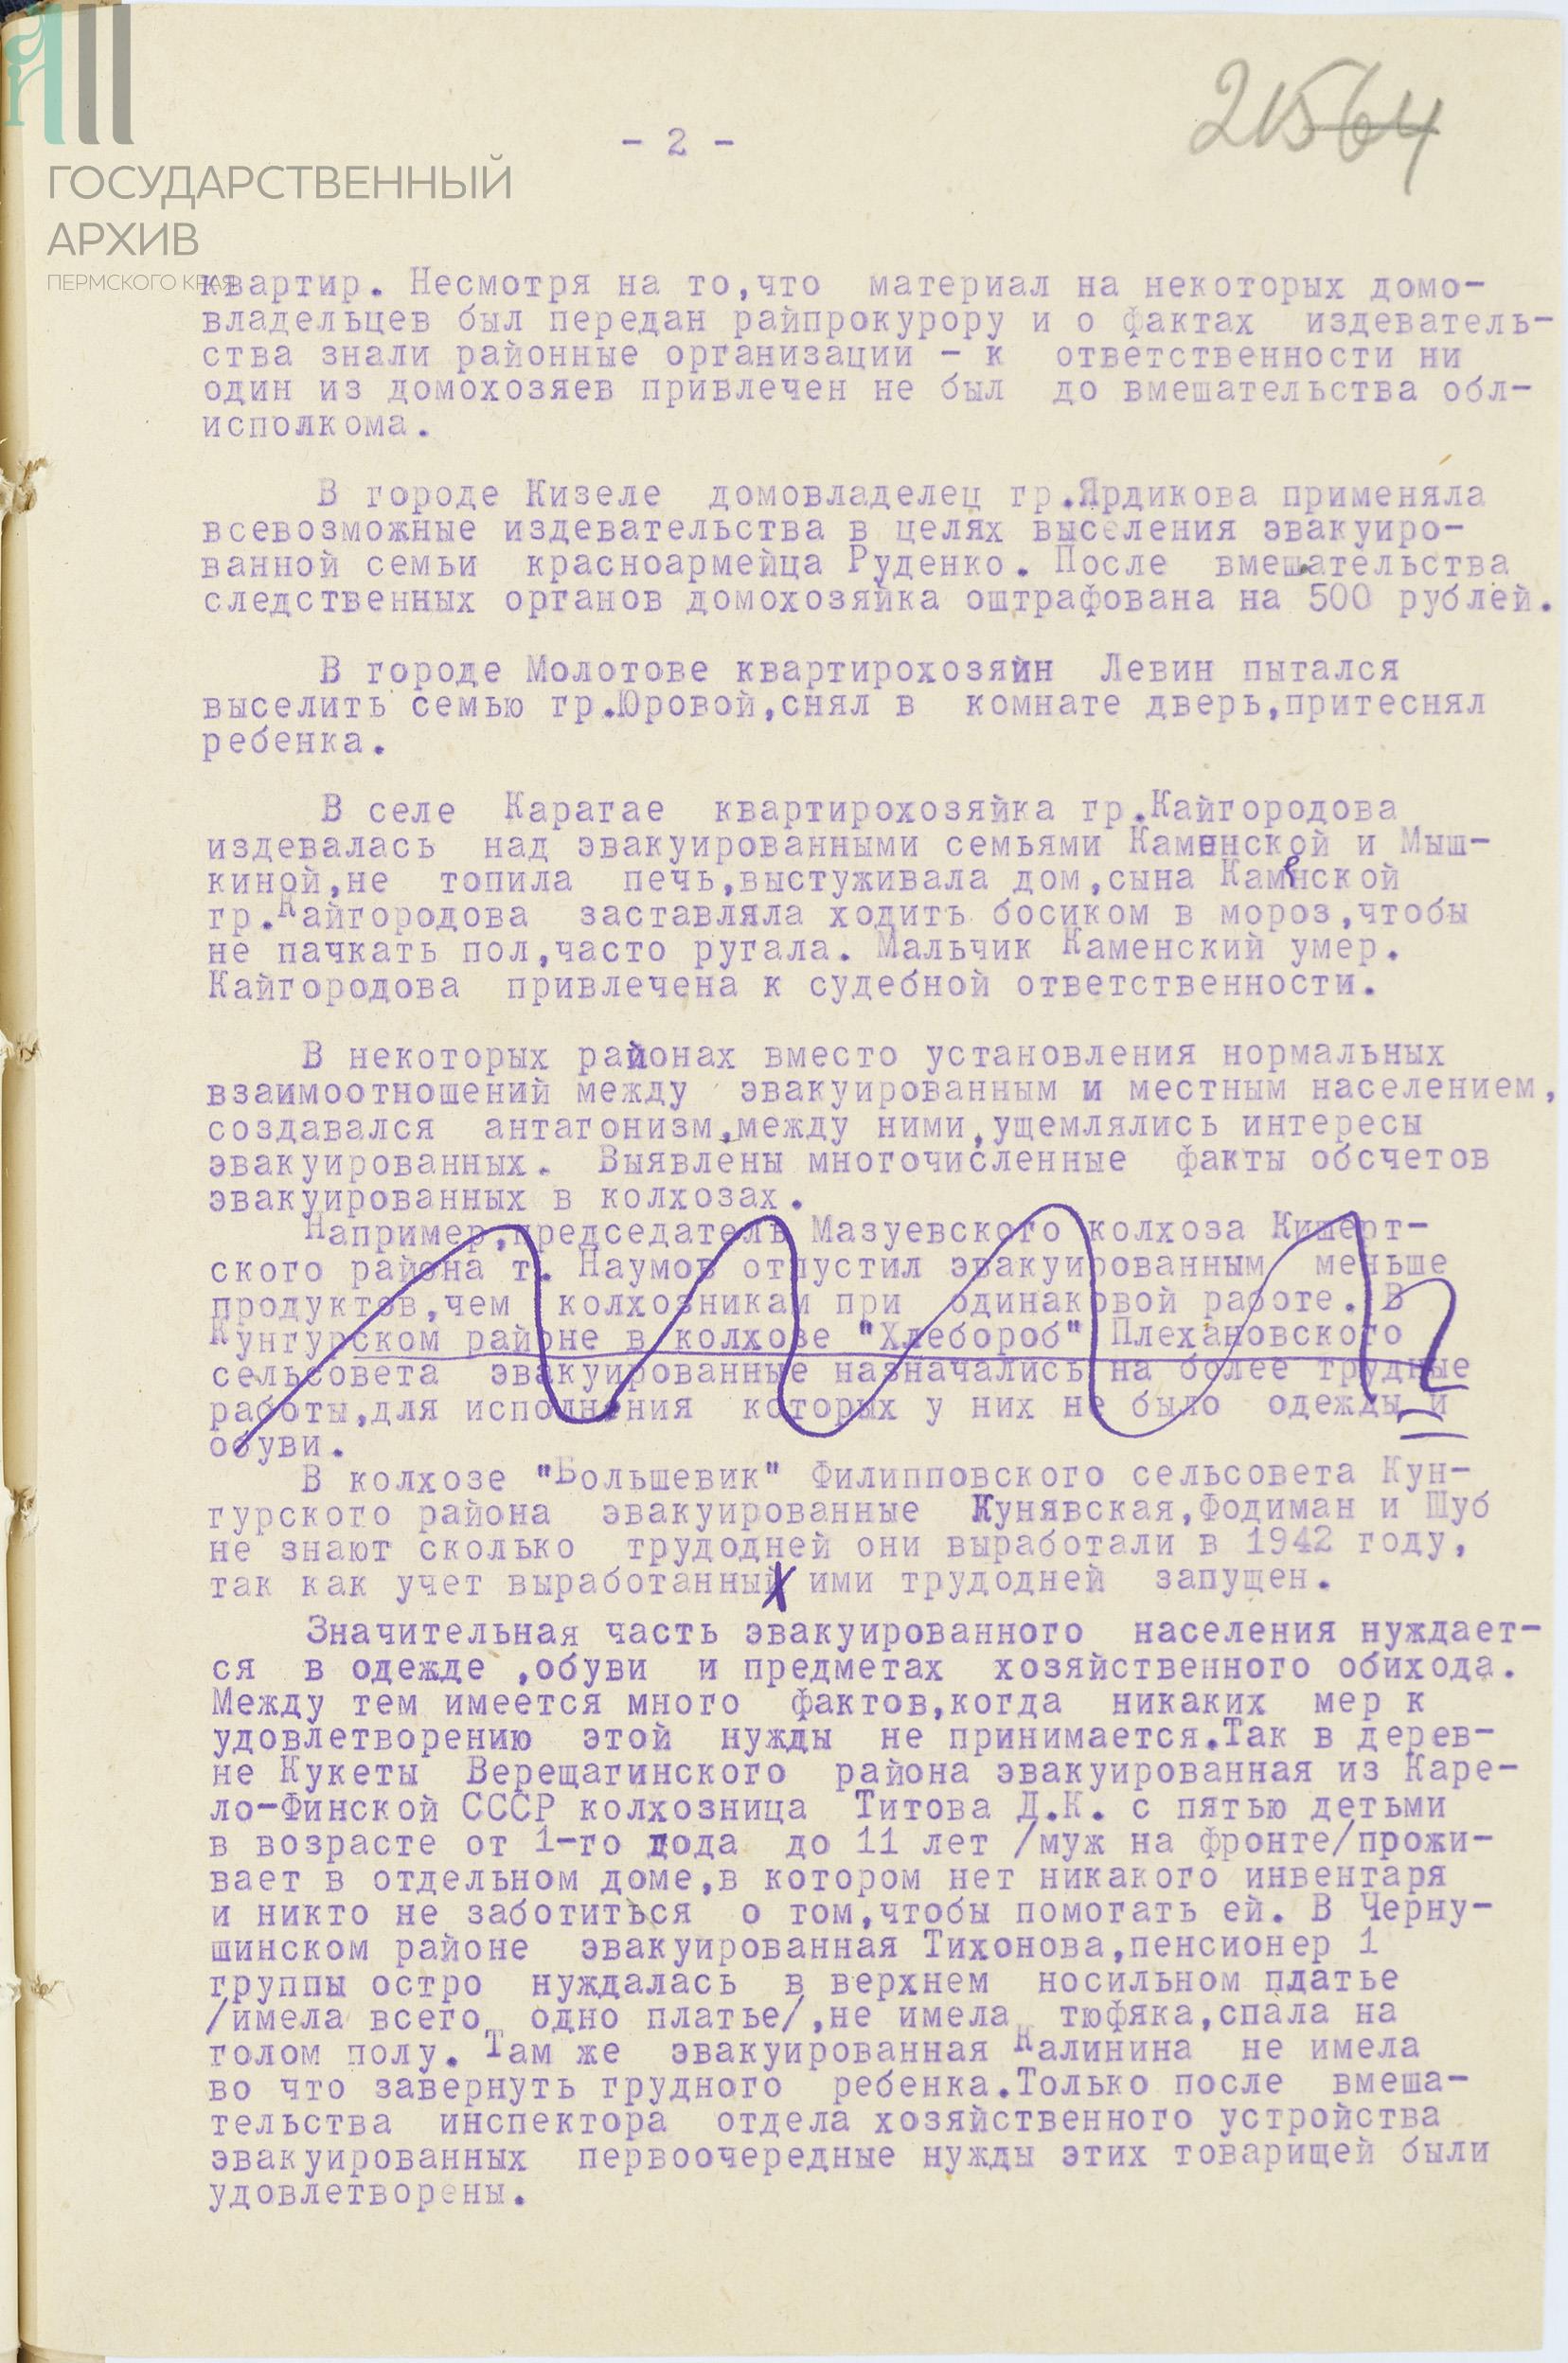 - 2 -
ГОСУДАРСТВЕННЫЙ
АРХИВ
ПЕРМСКОГО КРАЯ
квартир. Несмотря на то,что материал на некоторых домо-
владельцев был передан райпрокурору и о фактах издеватель-
ства знали районные организации - к ответственности ни
один из домохозяев привлечен не был до вмешательства обл-
исполкома.
В городе Кизеле домовладелец гр.Ярдикова применяла
всевозможные издевательства в целях выселения эвакуиро-
ванной семьи красноармейца Руденко. После вмешательства
следственных органов домохозяйка оштрафована на 500 рублей.
В городе Молотове квартирохозяйн Левин пытался
выселить семью гр.Юровой,снял в комнате дверь,притеснял
ребенка.
В селе Карагае квартирохозяйка гр.Кайгородова
издевалась над эвакуированными семьями Каменской и Мыш-
киной,не топила печь,выстуживала дом,сына Каменской
гр.Кайгородова заставляла ходить босиком в мороз,чтобы
не пачкать пол,часто ругала. Мальчик Каменский умер.
Кайгородова привлечена к судебной ответственности.
В некоторых районах вместо установления нормальных
взаимоотношений между эвакуированным и местным населением,
создавался антагонизм,между ними,ущемлялись интересы
эвакуированных. Выявлены многочисленные факты обсчетов
эвакуированных в колхозах.
Например,председатель Мазуевского колхоза Кишерт-
ского района т. Наумов отпустил эвакуированным меньше
продуктов,чем колхозникам при одинаковой работе. В
Кунгурском районе в колхозе "Хлебороб" Плехановского
сельсовета эвакуированные назначались на более трудные
работы,для исполнения которых у них не было одежды и
обуви.
В колхозе "Большевик" Филипповского сельсовета Кун-
гурского района эвакуированные Кунявская,Фодиман и Шуб
не знают сколько трудодней они выработали в 1942 году,
так как учет выработанных ими трудодней запущен.
Значительная часть эвакуированного населения нуждает-
ся в одежде ,обуви и предметах хозяйственного обихода.
Между тем имеется много фактов,когда никаких мер к
удовлетворению этой нужды не принимается.Так в дерев-
не Кукеты Верещагинского района эвакуированная из Каре-
ло-Финской СССР колхозница Титова Д.К. с пятью детьми
в возрасте от 1-го дода до 11 лет /муж на фронте/прожи-
вает в отдельном доме,в котором нет никакого инвентаря
и никто не заботиться о том,чтобы помогать ей. В Черну-
шинском районе эвакуированная Тихонова,пенсионер 1
группы остро нуждалась в верхнем носильном платье
/имела всего одно платье/,не имела тюфяка,спала на
голом полу. Там же эвакуированная Калинина не имела
во что завернуть грудного ребенка.Только после вмеша-
тельства инспектора отдела хозяйственного устройства
эвакуированных первоочередные нужды этих товарищей были
удовлетворены.